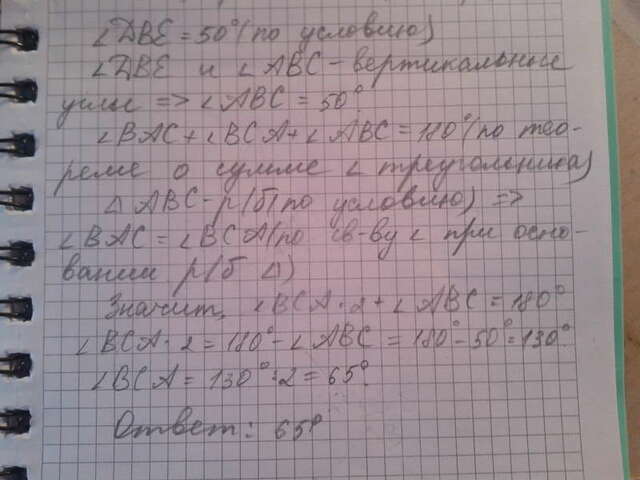 ∠DBE = 50° (по условию)
∠DBE и ∠ABC - вертикальные
углы => ∠ABC = 50°.
∠BAC + ∠BCA + ∠ABC = 180° (по тео-
реме о сумме ∠ треугольника)
△ ABC - р/б (по условию) =>
∠BAC = ∠BCA (по св-ву ∠ при осно-
вании р/б △)
Значит, ∠BCA · 2 + ∠ABC = 180°
∠BCA · 2 = 180° - ∠ABC = 180° - 50° = 130°.
∠BCA = 130° : 2 = 65°.
Ответ: 65°